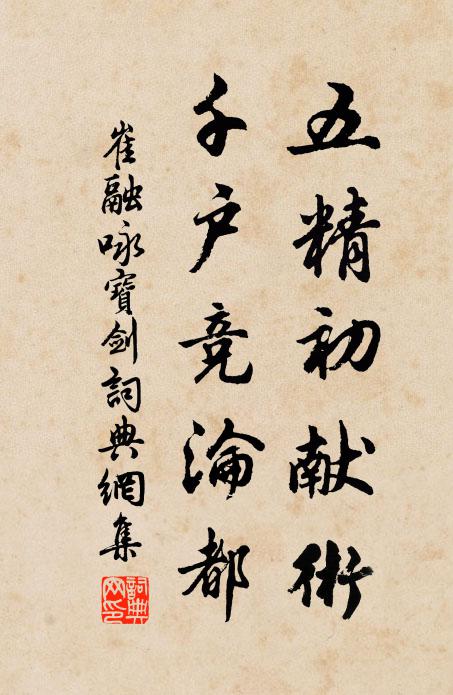 五精初献術
千户竞淪都
崔融咏寶劍詞典網集
詞典網印